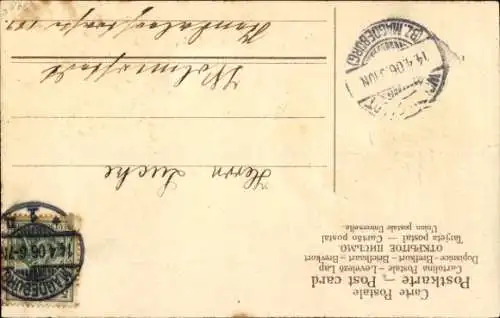 Carte Postale
Postkarte – Post card
Cartolina Postale – Levelező Lap
Dopisnice – Brefkort – Briefkaart – Brevkort
ОТКРЫТОЕ ПИСЬМО.
Tarjeta postal – Cartão postal
Union postale Universelle.
Herrn
Wolmirstedt
(BZ. MAGDEBURG)
14.4.06.
MAGDEBURG
14.4.06.6-7